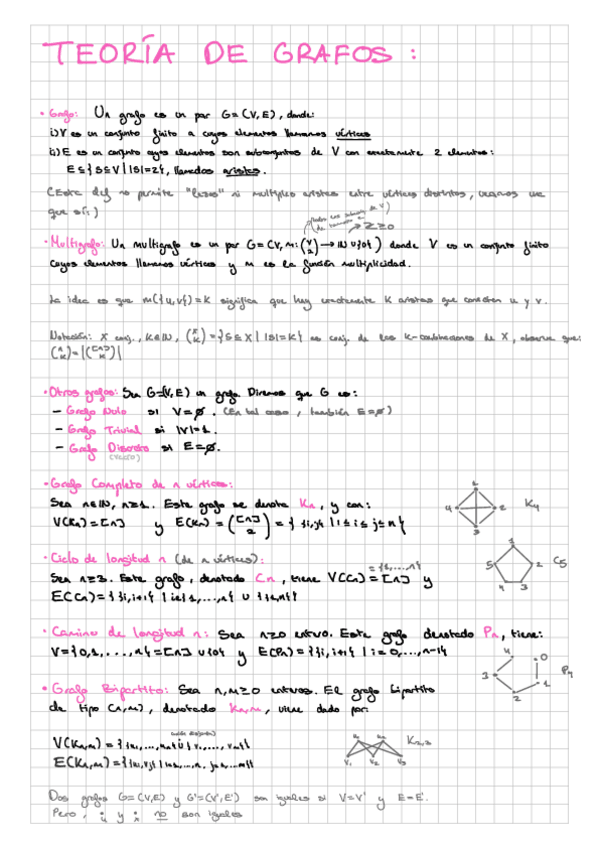 TEORÍA DE GRAFOS:
• Grafo: Un grafo es un par G=(V,E), donde:
i) V es un conjunto finito a cuyos elementos llamamos vértices
ii) E es un conjunto cuyos elementos son subconjuntos de V con exactamente 2 elementos:
E⊆{S⊆V | |S|=2}, llamados aristas.
(Esta def no permite "lazos" ni múltiples aristas entre vértices distintos, veamos una
que sí:)
(todos los subconj. de V de tamaño 2) → Z≥0
• Multigrafo: Un multigrafo es un par G=(V, m: (V 2) → ℕ∪{0}) donde V es un conjunto finito
cuyos elementos llamamos vértices y m es la función multiplicidad.
La idea es que m({u,v})=k significa que hay exactamente k aristas que conecten u y v.
Notación: X conj., k∈ℕ, (X k) = {S⊆X | |S|=k} es conj. de las k-combinaciones de X, observe que:
(n k)=|([n] k)|
• Otros grafos: Sea G=(V,E) un grafo. Diremos que G es:
– Grafo Nulo si V=∅. (En tal caso, también E=∅)
– Grafo Trivial si |V|=1.
– Grafo Discreto si E=∅.
(vacío)
• Grafo Completo de n vértices:
Sea n∈ℕ, n≥1. Este grafo se denota Kn, y con:
V(Kn)=[n] y E(Kn)=([n] 2)={ {i,j} | 1≤i≤j≤n}
1 2 3 4 K4
• Ciclo de longitud n (de n vértices):
={1,...,n}
Sea n≥3. Este grafo, denotado Cn, tiene V(Cn)=[n] y
E(Cn)={ {i,i+1} | i∈{1,...,n{ ∪ { {1,n}}
1 2 3 4 5 C5
• Camino de longitud n: Sea n≥0 entero. Este grafo denotado Pn, tiene:
V={0,1,...,n}=[n]∪{0} y E(Pn)={{i,i+1} | i=0,...,n-1}
0 1 2 3 4 P4
• Grafo Bipartito: Sea n,m≥0 enteros. El grafo bipartito
de tipo (n,m), denotado Kn,m, viene dado por:
(unión disjunta)
V(Kn,m)={u1,...,un}∪̇{v1,...,vm}
E(Kn,m)={{ui,vj} | i=1,...,n, j=1,...,m}
u1 u2 v1 v2 v3 K2,3
Dos grafos G=(V,E) y G'=(V',E') son iguales si V=V' y E=E'.
Pero, y no son iguales